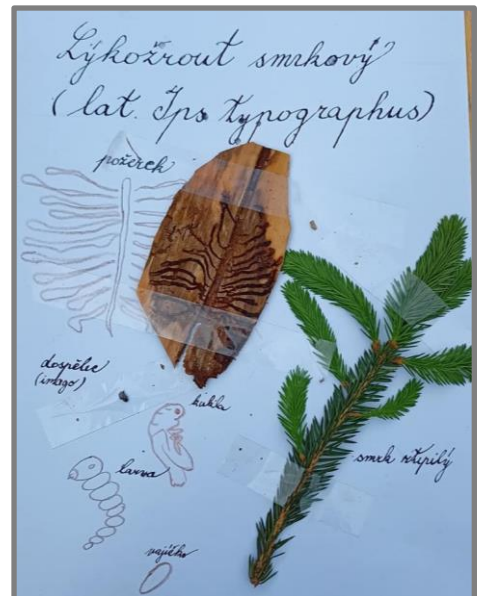 Lýkožrout smrkový
(lat. Ips typographus)
požerek
dospělec
(imago)
kukla
larva
smrk ztepilý
vajíčko